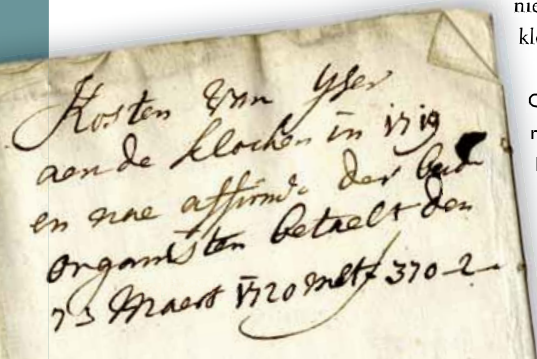 Kosten van yser
aen de klocken in 1719
en nae der
organisten betaelt den
73 Maert 1720 met f 370-2-
nie
kl